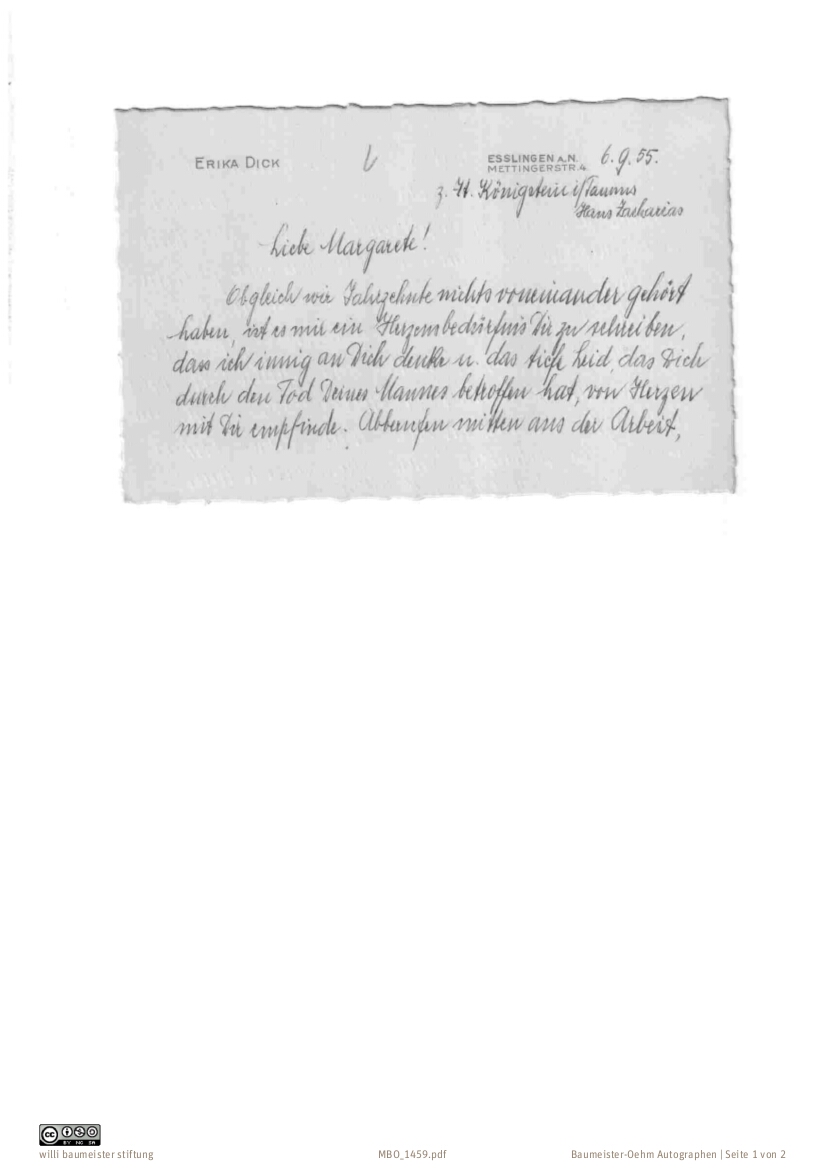 ERIKA DICK
ESSLINGEN A.N. 6.9.55.
METTINGERSTR. 4
z. Zt. Königstein i/Taunus
Haus Zacharias
Liebe Margarete!
Obgleich wir Jahrzehnte nichts voneinander gehört
haben, ist es mir ein Herzensbedürfnis Dir zu schreiben,
dass ich innig an Dich denke u. das tiefe Leid, das Dich
durch den Tod Deines Mannes betroffen hat, von Herzen
mit Dir empfinde. Abberufen mitten aus der Arbeit,
CC BY NC SA
willi baumeister stiftung MBO_1459.pdf Baumeister-Oehm Autographen | Seite 1 von 2